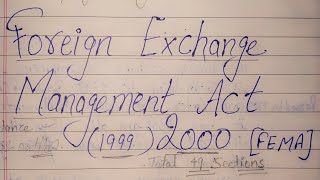 Foreign Exchange
Management Act
(1999) 2000 [FEMA]
Total 49 Sections